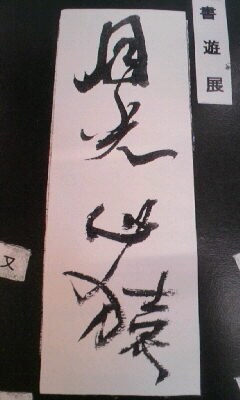 書遊展
月光山猿
又